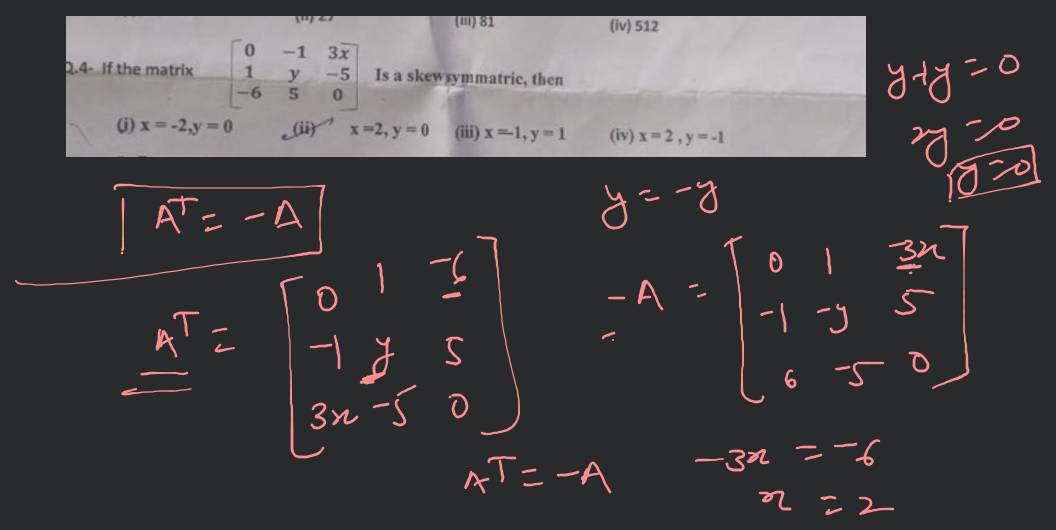 (ii) 27 (iii) 81 (iv) 512
Q.4- If the matrix [0 −1 3x; 1 y −5; −6 5 0] Is a skew symmatric, then
(i) x = -2,y = 0 (ii) x =2, y = 0 (iii) x =-1, y = 1 (iv) x = 2 , y = -1
y+y=0
2y=0
y=0
Aᵀ = -A
y = -y
Aᵀ = [0 1 -6; -1 y 5; 3x -5 0]
-A = [0 1 -3x; -1 -y 5; 6 -5 0]
Aᵀ = -A
-3x = -6
x = 2